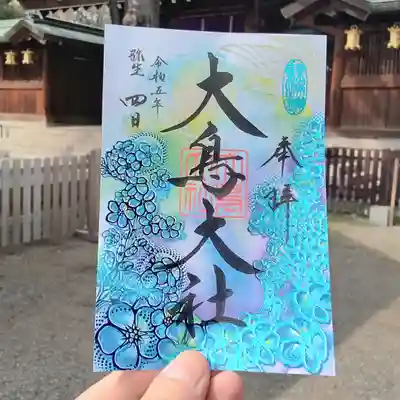 奉拝
大鳥大社
令和五年
弥生 四日